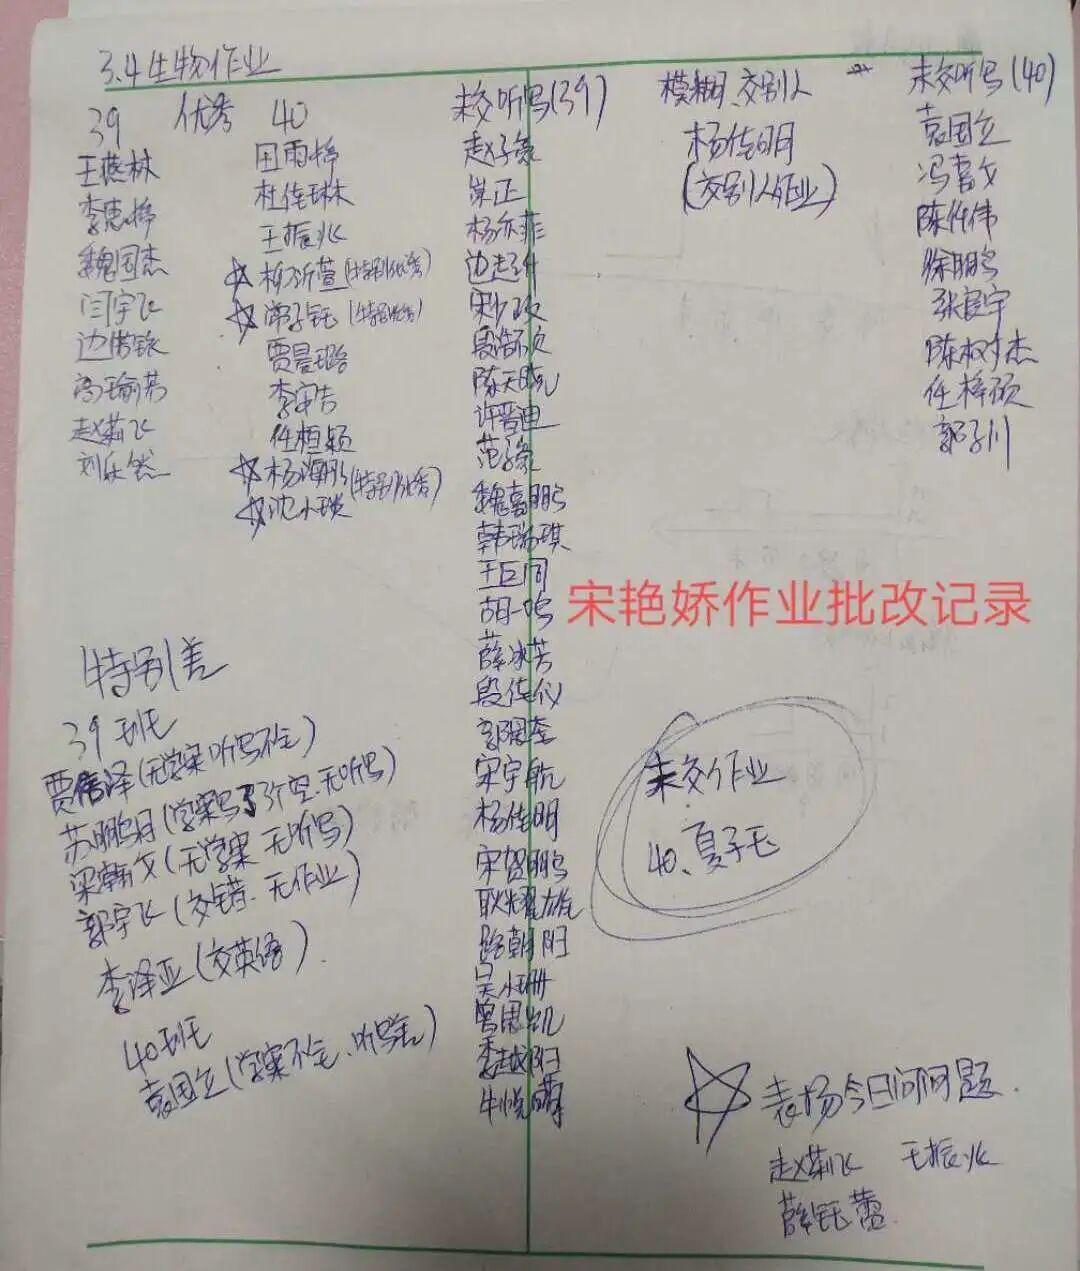 3.4生物作业
39 优秀 40
王燕林
李惠婷
魏国杰
闫宇飞
赵莉飞
刘乐然
田雨婷
杜佳琳
王振兆
(特别优秀)
(特别优秀)
贾晨璐
李宇吉
任恒颖
杨海彤(特别优秀)
沈小琰
未交听写(39)
赵子豪
崇正
杨亦菲
陈天晓
许晋迪
范子豪
魏嘉鹏
韩瑞琪
王巨同
胡一鸣
薛冰芳
段佳仪
宋宇航
杨佳明
宋智鹏
耿耀雄
路朝阳
吴小珊
曾思凯
李越阳
模糊、交别人
杨佳明
(交别人作业)
未交听写(40)
袁国立
冯嘉文
陈作伟
徐鹏
张良宇
陈权杰
任梓硕
郭子川
宋艳娇作业批改记录
特别差
39班
贾信泽(无学案 听写不全)
苏鹏月(学案写了3个空.无听写)
梁翰文(无学案 无听写)
郭宇飞(交错.无作业)
李泽亚(交英语)
40班
袁国立(学案不全、听写差)
未交作业
40、夏子毛
表扬今日问问题
赵莉飞 王振兆
薛钰蕾